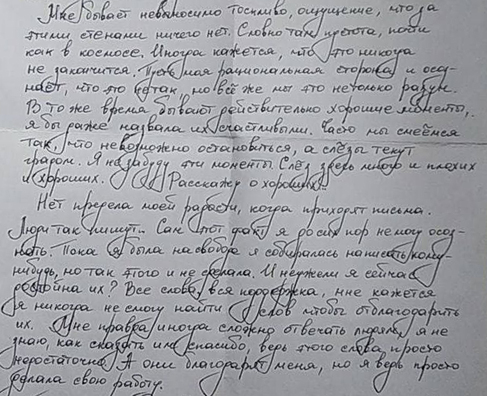 Мне бывает невыносимо тоскливо, ощущение, что за
этими стенами ничего нет. Словно там пустота, почти
как в космосе. Иногда кажется, что это никогда
не закончится. Пусть моя рациональная сторона и осоз-
наёт, что это не так, но всё же мы это не только разум.
В то же время бывают действительно хорошие моменты,
я бы даже назвала их счастливыми. Часто мы смеёмся
так, что невозможно остановиться, а слёзы текут
градом. Я не забуду эти моменты. Слёз здесь много и плохих
и хороших. Расскажу о хороших.
Нет предела моей радости, когда приходят письма.
Люди так пишут.. Сам этот факт я до сих пор не могу осоз-
нать. Пока я была на свободе я собиралась написать кому-
нибудь, но так этого и не сделала. И неужели я сейчас
достойна их? Все слова, вся поддержка, мне кажется
я никогда не смогу найти слов чтобы отблагодарить
их. Мне правда иногда сложно отвечать людям, я не
знаю, как сказать им спасибо, ведь этого слова просто
недостаточно. А они благодарят меня, но я ведь просто
делала свою работу.